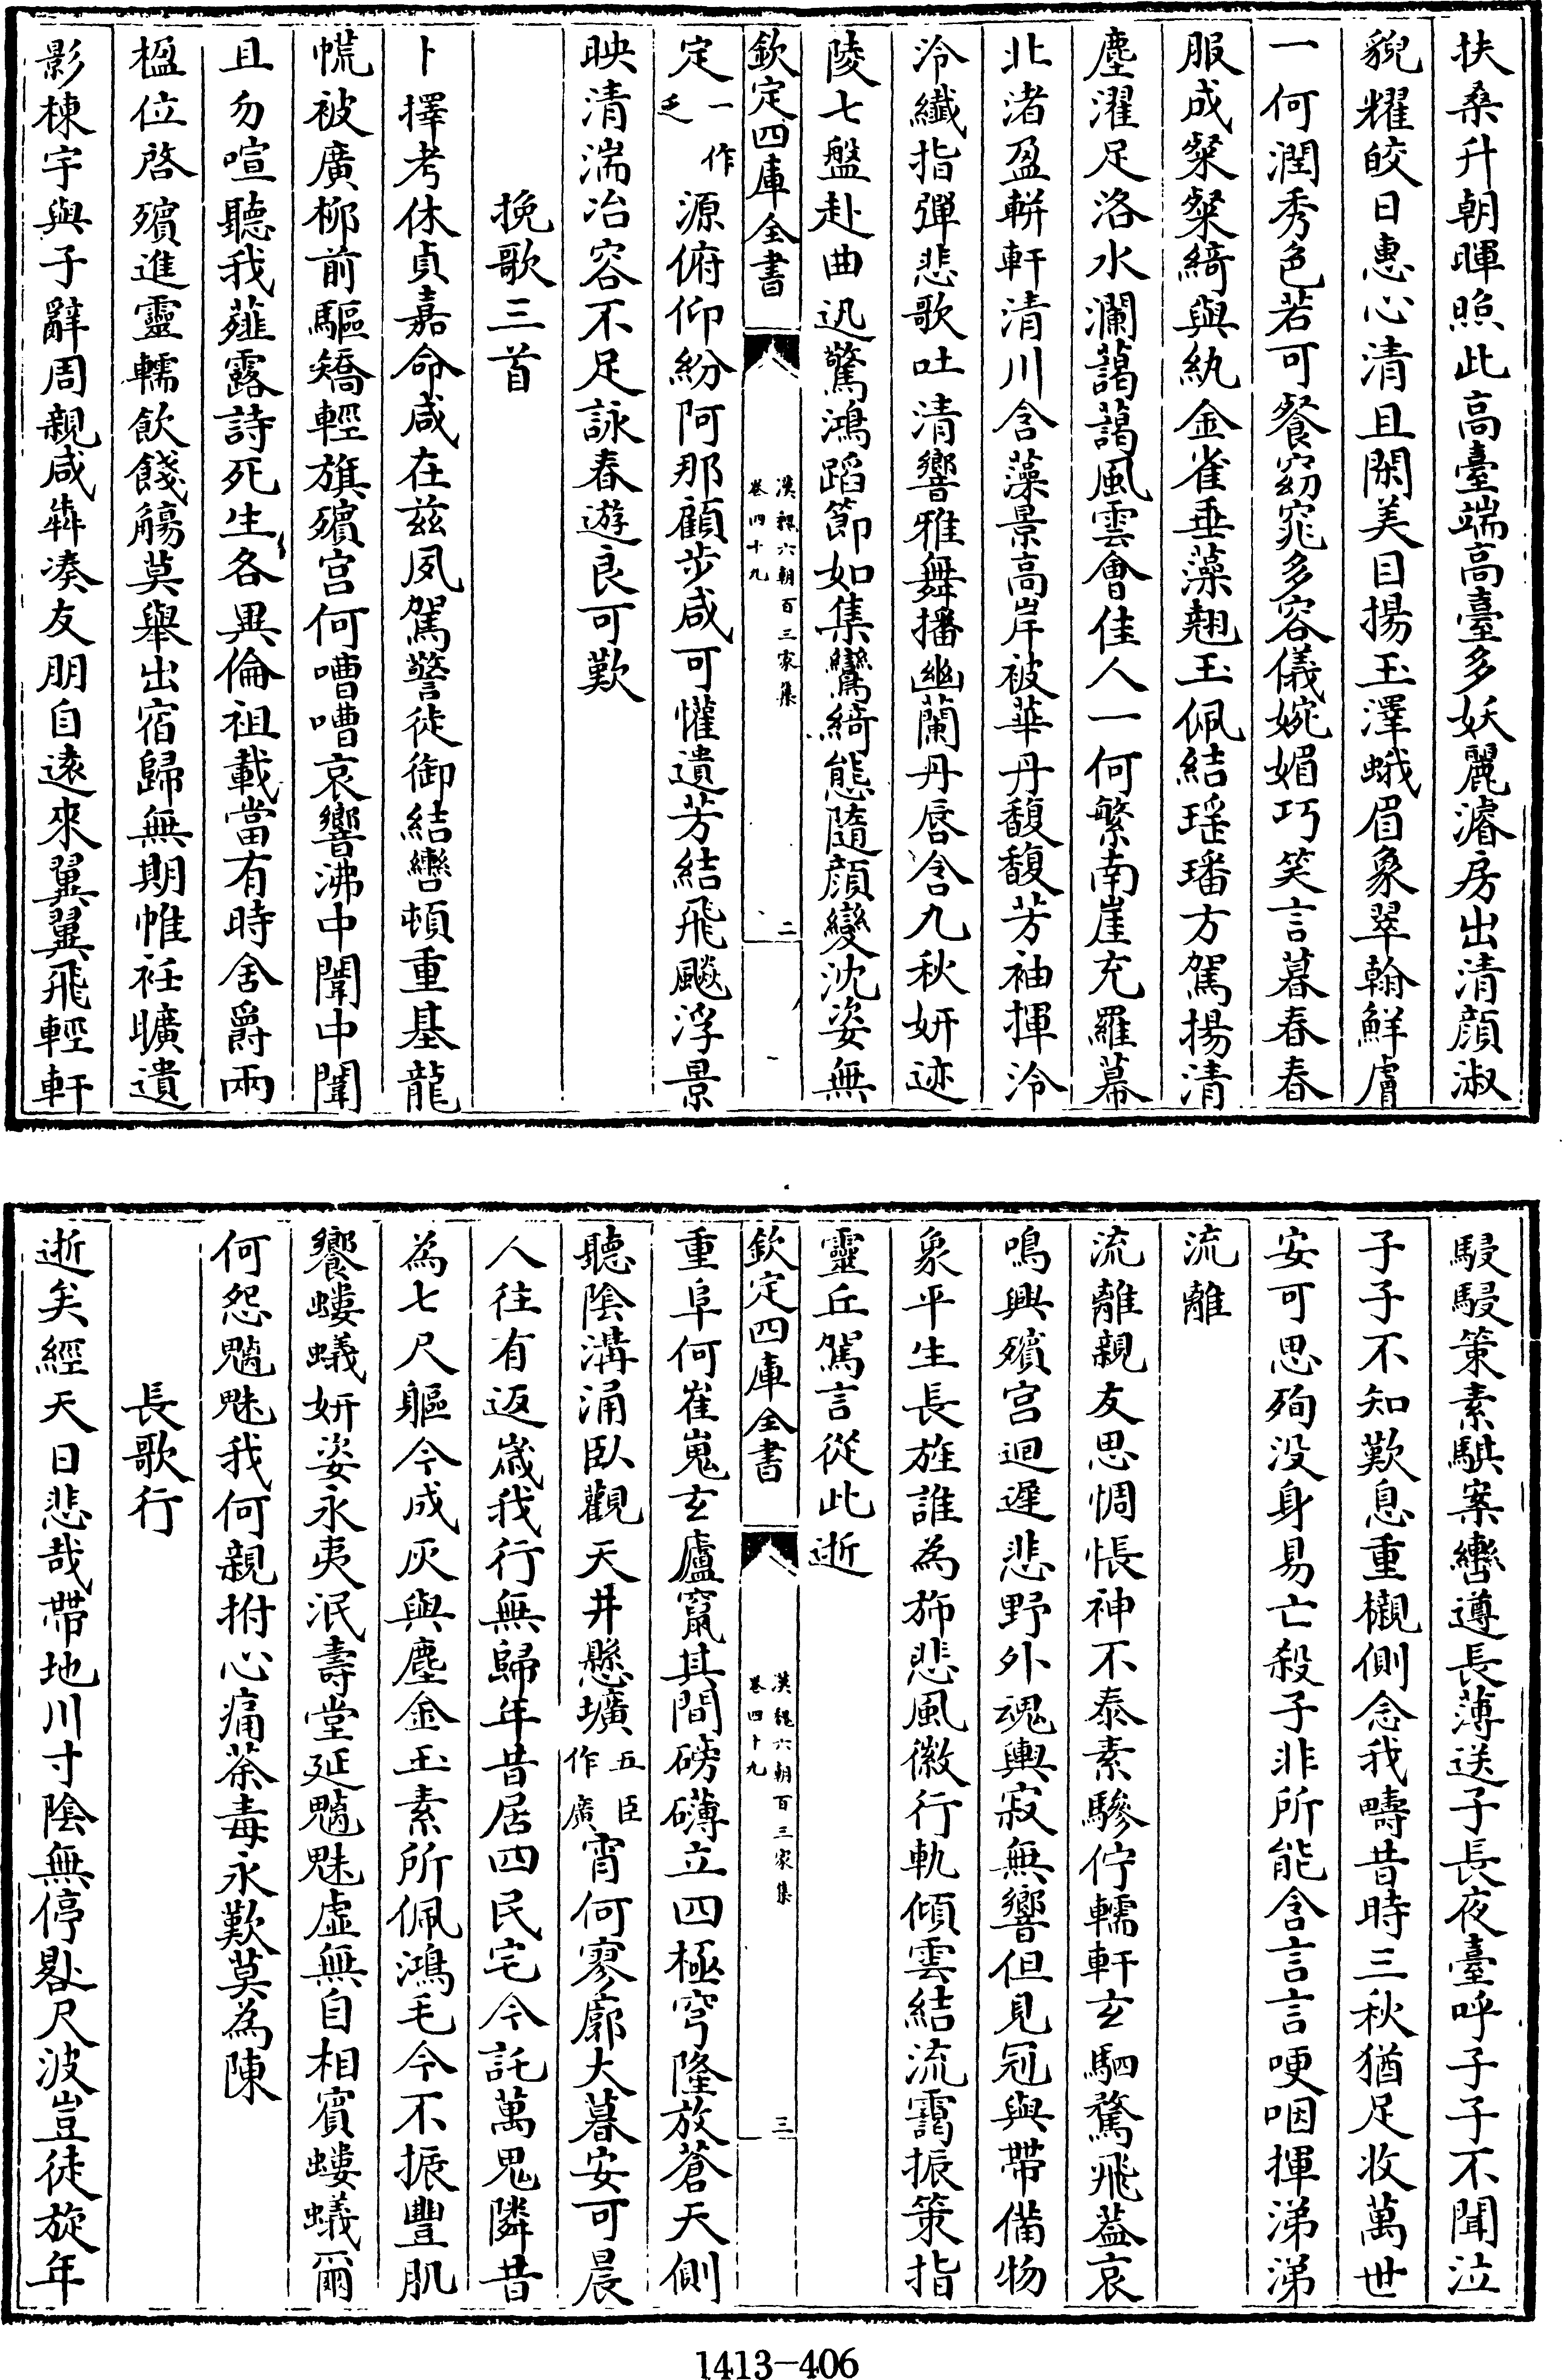 扶桑升朝暉照此高臺端高臺多妖麗濬房出清顔淑
貌耀皎日惠心清且閑美目揚玉澤蛾眉象翠翰鮮膚
一何潤秀色若可餐窈窕多容儀婉媚巧笑言暮春春
服成粲粲綺與紈金雀垂藻翹玉佩結瑶璠方駕揚清
塵濯足洛水瀾藹藹風雲會佳人一何繁南崖充羅幕
北渚盈軿軒清川含藻景高岸被華丹馥馥芳袖揮泠
泠纖指彈悲歌吐清響雅舞播幽蘭丹唇含九秋妍迹
陵七盤赴曲迅驚鴻蹈節如集鸞綺態隨顔變沈姿無
欽定四庫全書
漢魏六朝百三家集
卷四十九
二
定一作乏源俯仰紛阿那顧步咸可懽遺芳結飛飈浮景
映清湍冶容不足詠春遊良可歎
挽歌三首
卜擇考休貞嘉命咸在兹夙駕警徒御結轡頓重基龍
㡆被廣柳前驅矯輕旗殯宫何嘈嘈哀響沸中闈中闈
且勿喧聽我薤露詩死生各異倫祖載當有時舍爵兩
楹位啓殯進靈轜飲餞觴莫舉出宿歸無期帷衽曠遺
影棟宇與子辭周親咸犇凑友朋自逺來翼翼飛輕軒
駸駸策素騏案轡遵長薄送子長夜臺呼子子不聞泣
子子不知歎息重櫬側念我疇昔時三秋猶足收萬世
安可思殉没身易亡殺子非所能含言言哽咽揮涕涕
流離
流離親友思惆悵神不泰素驂佇轜軒玄駟騖飛葢哀
鳴興殯宫迴遲悲野外魂輿寂無響但見冠與帶備物
象平生長旌誰為斾悲風徽行軌傾雲結流靄振策指
靈丘駕言從此逝
欽定四庫全書
漢魏六朝百三家集
卷四十九
三
重阜何崔嵬玄廬竄其間磅礴立四極穹隆放蒼天側
聽陰溝涌臥觀天井懸壙五臣作廣宵何寥廓大暮安可晨
人往有返嵗我行無歸年昔居四民宅今託萬鬼隣昔
為七尺軀今成灰與塵金玉素所佩鴻毛今不振豐肌
饗螻蟻妍姿永夷泯壽堂延魑魅虚無自相賓螻蟻爾
何怨魑魅我何親拊心痛荼毒永歎莫為陳
長歌行
逝矣經天日悲哉帶地川寸陰無停晷尺波豈徒旋年
1413-406